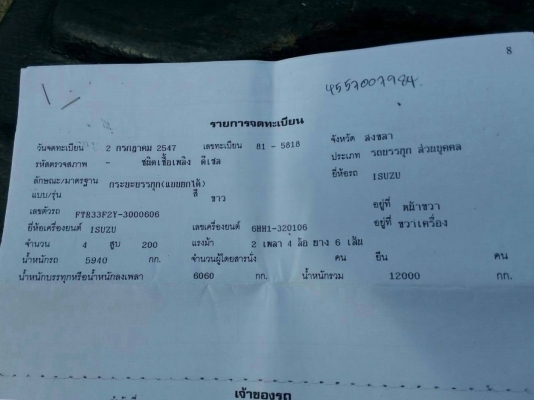 8
4557007984
รายการจดทะเบียน
วันจดทะเบียน 2 กรกฎาคม 2547 เลขทะเบียน 81 - 5818 จังหวัด สงขลา
รหัสตรวจสภาพ - ชนิดเชื้อเพลิง ดีเซล ประเภท รถบรรทุก ส่วนบุคคล
ลักษณะ/มาตรฐาน กระบะบรรทุก(แบบยกได้) ยี่ห้อรถ ISUZU
แบบ/รุ่น สี ขาว
เลขตัวรถ FTR33F2Y-3000606 อยู่ที่ หน้าขวา
ยี่ห้อเครื่องยนต์ ISUZU เลขเครื่องยนต์ 6HH1-320106 อยู่ที่ ขวาเครื่อง
จำนวน 4 สูบ 200 แรงม้า 2 เพลา 4 ล้อ ยาง 6 เส้น
น้ำหนักรถ 5940 กก. จำนวนผู้โดยสารนั่ง คน ยืน คน
น้ำหนักบรรทุกหรือน้ำหนักลงเพลา 6060 กก. น้ำหนักรวม 12000 กก.
เจ้าของรถ